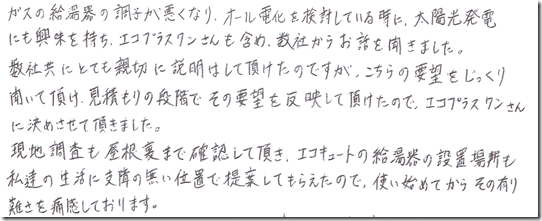 ガスの給湯器の調子が悪くなり、オール電化を検討している時に、太陽光発電
にも興味を持ち、エコプラスワンさんも含め、数社からお話を聞きました。
数社共にとても親切に説明はして頂けたのですが、こちらの要望をじっくり
聞いて頂け、見積もりの段階でその要望を反映して頂けたので、エコプラスワンさん
に決めさせて頂きました。
現地調査も屋根裏まで確認して頂き、エコキュートの給湯器の設置場所も
私達の生活に支障の無い位置で提案してもらえたので、使い始めてからその有り
難さを痛感しております。